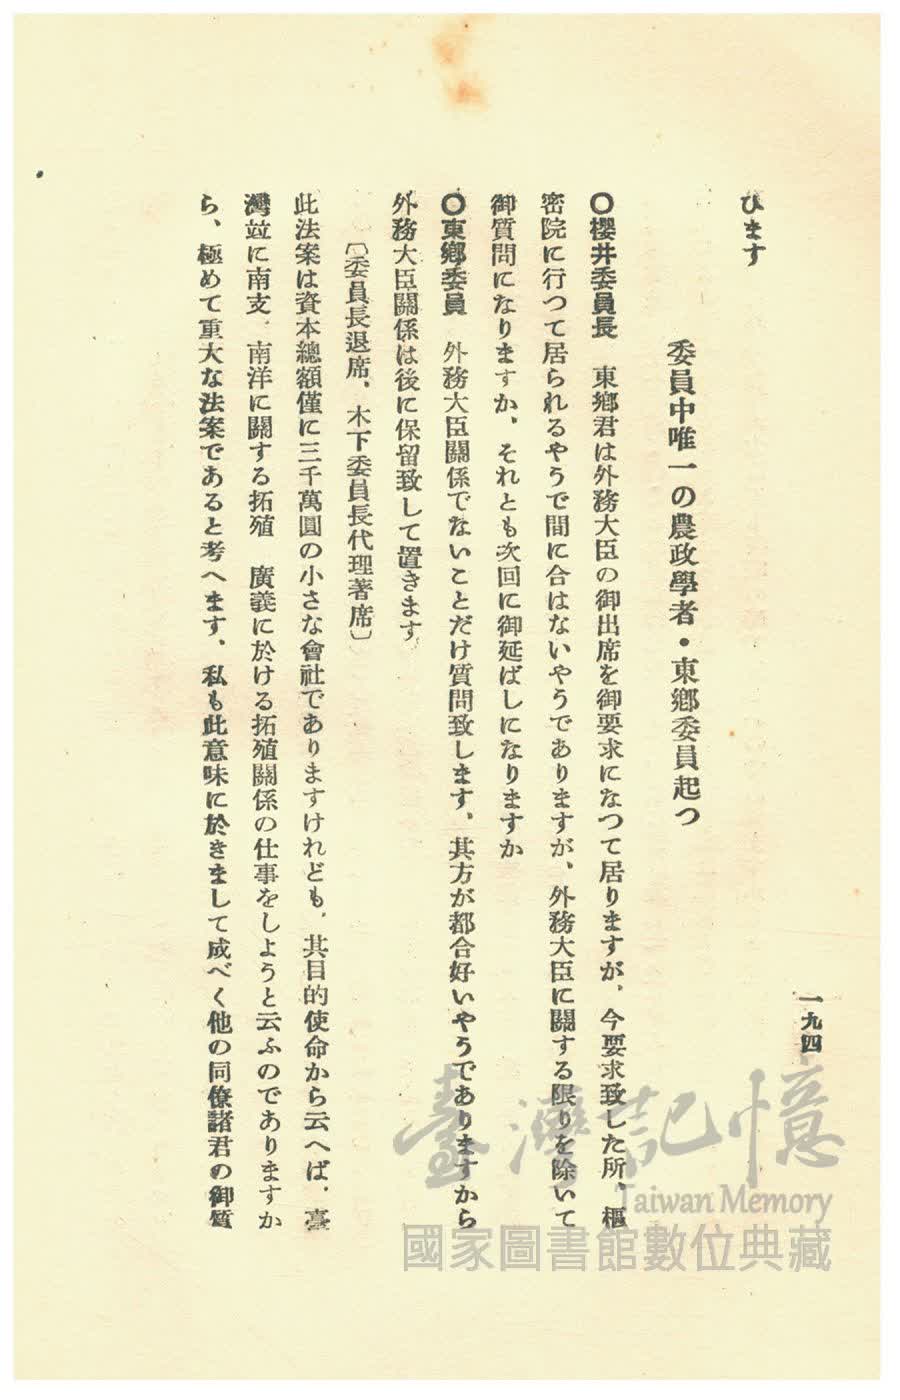 一九四
ひます
委員中唯一の農政學者・東鄕委員起つ
〇櫻井委員長　東鄕君は外務大臣の御出席を御要求になつて居りますが、今要求致した所、樞
密院に行つて居られるやうで間に合はないやうでありますが、外務大臣に關する限りを除いて
御質問になりますか、それとも次回に御延ばしになりますか
〇東鄕委員　外務大臣關係でないことだけ質問致します、其方が都合好いやうでありますから
外務大臣關係は後に保留致して置きます
〔委員長退席、木下委員長代理著席〕
此法案は資本總額僅に三千萬圓の小さな會社でありますけれども、其目的使命から云へば、臺
灣竝に南支、南洋に關する拓殖　廣義に於ける拓殖關係の仕事をしようと云ふのでありますか
ら、極めて重大な法案であると考へます、私も此意味に於きまして成べく他の同僚諸君の御質
臺灣記憶
Taiwan Memory
國家圖書館數位典藏